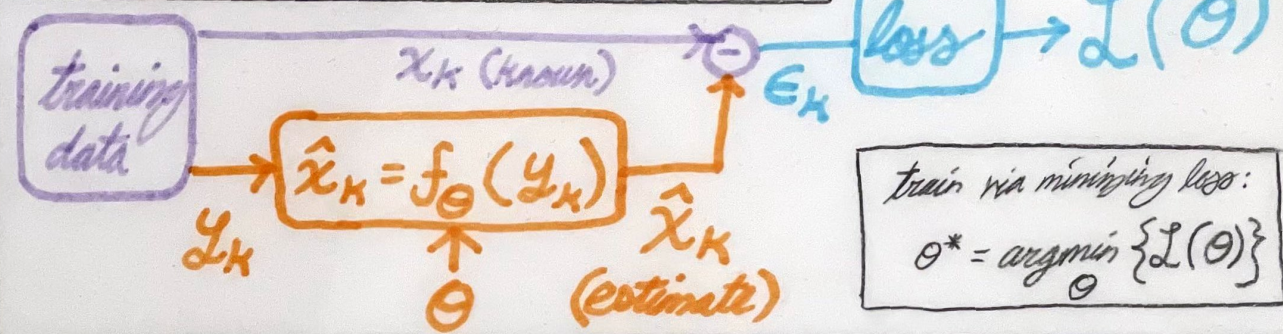 training
data
x_k (known)
-
ϵ_k
loss
ℒ(θ)
y_k
x̂_k = f_θ(y_k)
θ
x̂_k
(estimate)
train via minimizing loss:
θ* = argmin {ℒ(θ)}
θ